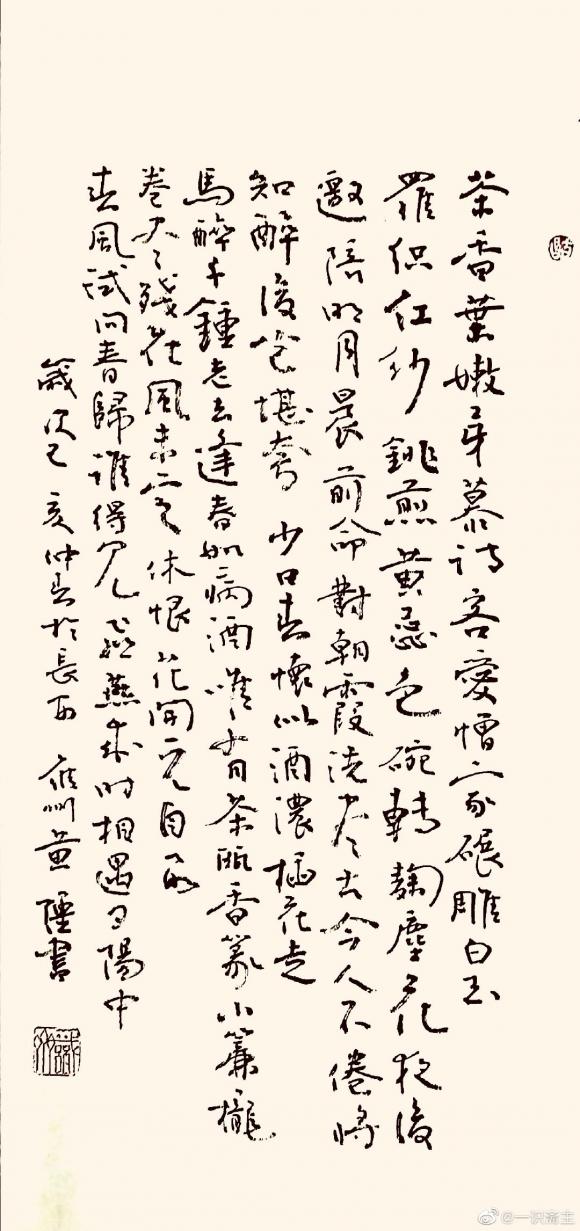 茶香葉嫩芽慕詩客愛僧家碾雕白玉
羅织红紗銚煎黄蕊色碗轉麴塵花夜後
邀陪明月晨前命對朝霞洗盡古今人不倦將
知醉後豈堪夸 少日春懷似酒濃插花走
馬醉千鍾老去逢春如病酒唯有茶甌香篆小簾櫳
卷盡殘花風未定休恨花開元自要
春風試問春歸誰得見飛燕來時相遇夕陽中
歲次己亥仲春於長安 州黄書
@一识斋主